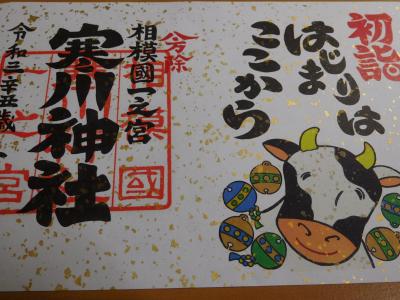 初詣
はじまりは
ここから
八方除
相模國一之宮
寒川神社
令和三辛丑歳